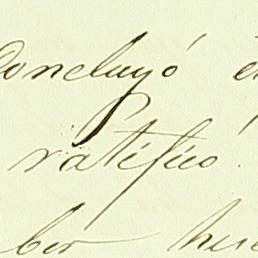 Concluyó e
ratificó
ber hic